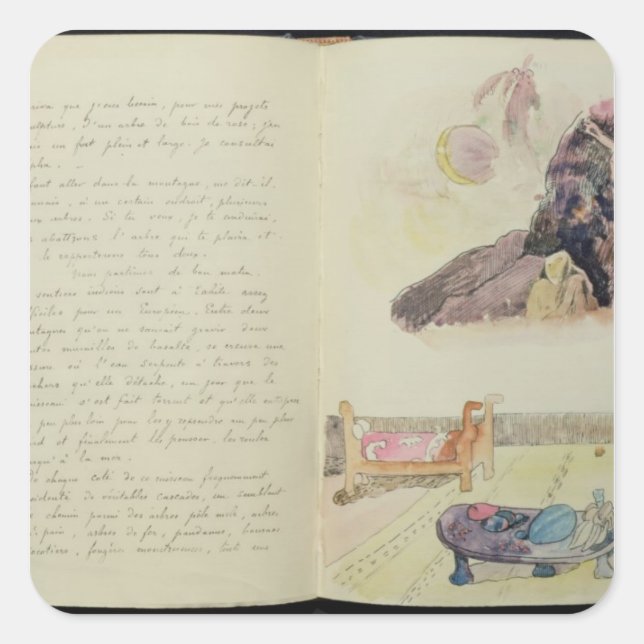 arriva que j'eus besoin, pour mes projets
sculpture, d'un arbre de bois de rose; j'en
un fort plein et large. Je consultai
faut aller dans la montagne, me dit-il.
connais, à un certain endroit, plusieurs
beaux arbres. Si tu veux, je te conduirai,
abattrons l'arbre qui te plaira et
le rapporterons tous deux.
Nous partîmes de bon matin.
sentiers indiens sont à Tahiti assez
difficiles pour un Européen. Entre deux
montagnes qu'on ne saurait gravir deux
hautes murailles de basalte, se creuse une
fissure où l'eau serpente à travers des
rochers qu'elle détache, un jour que le
ruisseau s'est fait torrent et qu'elle entrepose
un peu plus loin pour les y reprendre un peu plus
tard et finalement les pousser, les rouler
jusqu'à la mer.
De chaque coté de ce ruisseau fréquemment
accidenté de véritables cascades, un semblant
de chemin parmi des arbres pêle mêle, arbres
à pain, arbres de fer, pandanus, bouraos
cocotiers, fougères monstrueuses, toute une